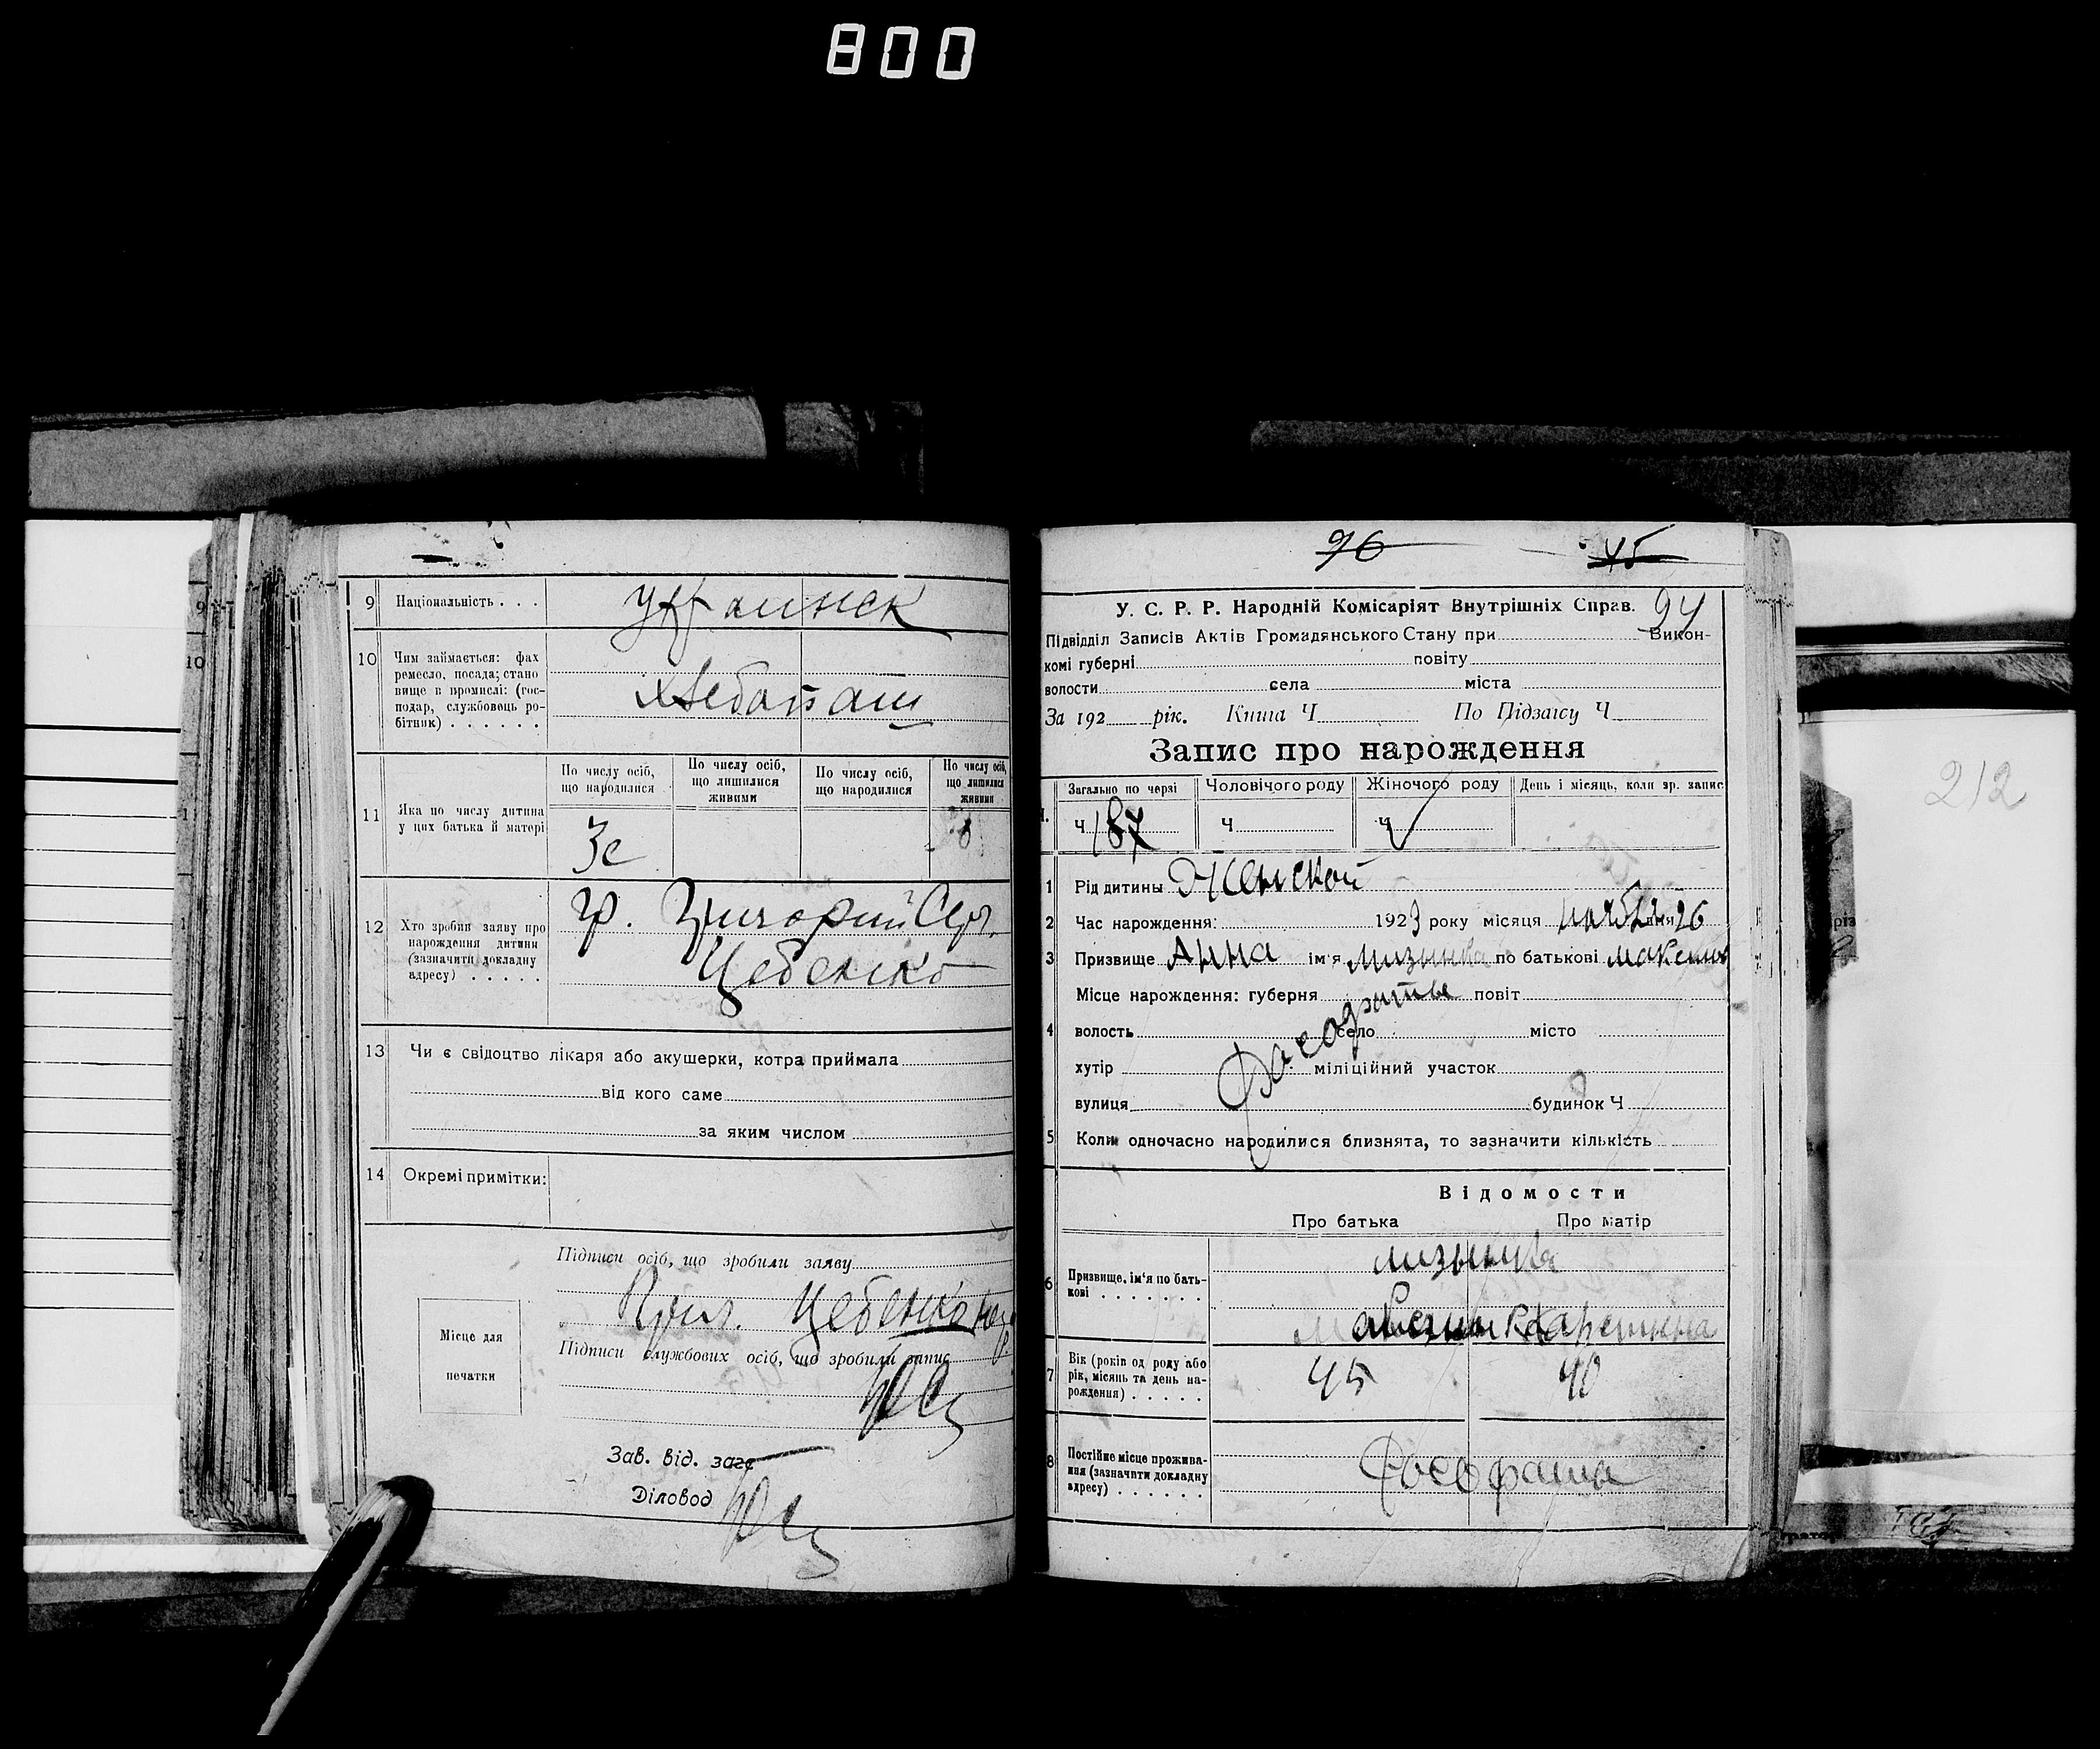 800
9 Національність . . . Украинск
10 Чим займається: фах
ремесло, посада; стано
вище в промислі: (гос-
подар, службовець ро-
бітник) . . . . . .
Хлебопаш
11 Яка по числу дитина
у цих батька й матері
По числу осіб,
що народилися
По числу осіб,
що лишилися
живими
По числу осіб,
що народилися
По числу осіб,
що лишилися
живими
3е
8
12 Хто зробив заяву про
нарождення дитини
(зазначити докладну
адресу) . . . . .
гр. Григорий Сер.
Цебенко
13 Чи є свідоцтво лікаря або акушерки, котра приймала
від кого саме
за яким числом
14 Окремі примітки:
Підписи осіб, що зробили заяву
Цебенко
Підписи службових осіб, що зробили запис
Місце для
печатки
Зав. від. загс
Діловод
96 45
94
У. С. Р. Р. Народній Комісаріят Внутрішніх Справ.
Підвідділ Записів Актів Громадянського Стану при Викон-
комі губерні повіту
волости села міста
За 192 рік. Книга Ч По Підзагсу Ч
Запис про нарождення
Загально по черзі Чоловічого роду Жіночого роду День і місяць, коли зр. запис
Ч 187 Ч Ч
1 Рід дитины Женской
2 Час нарождення: 1923 року місяця ноября дня 26
3 Призвище Анна ім'я мизынка по батькові максим
Місце нарождення: губерня повіт
4 волость село місто
хутір міліційний участок
вулиця будинок Ч
5 Коли одночасно народилися близнята, то зазначити кількість
Відомости
Про батька Про матір
6 Призвище, ім'я по бать-
кові . . . . . . .
мизынка
7 Вік (років од роду або
рік, місяць та день на-
рождення) . . . . .
45 40
8 Постійне місце прожива-
ння (зазначити докладну
адресу) . . . . . .
212